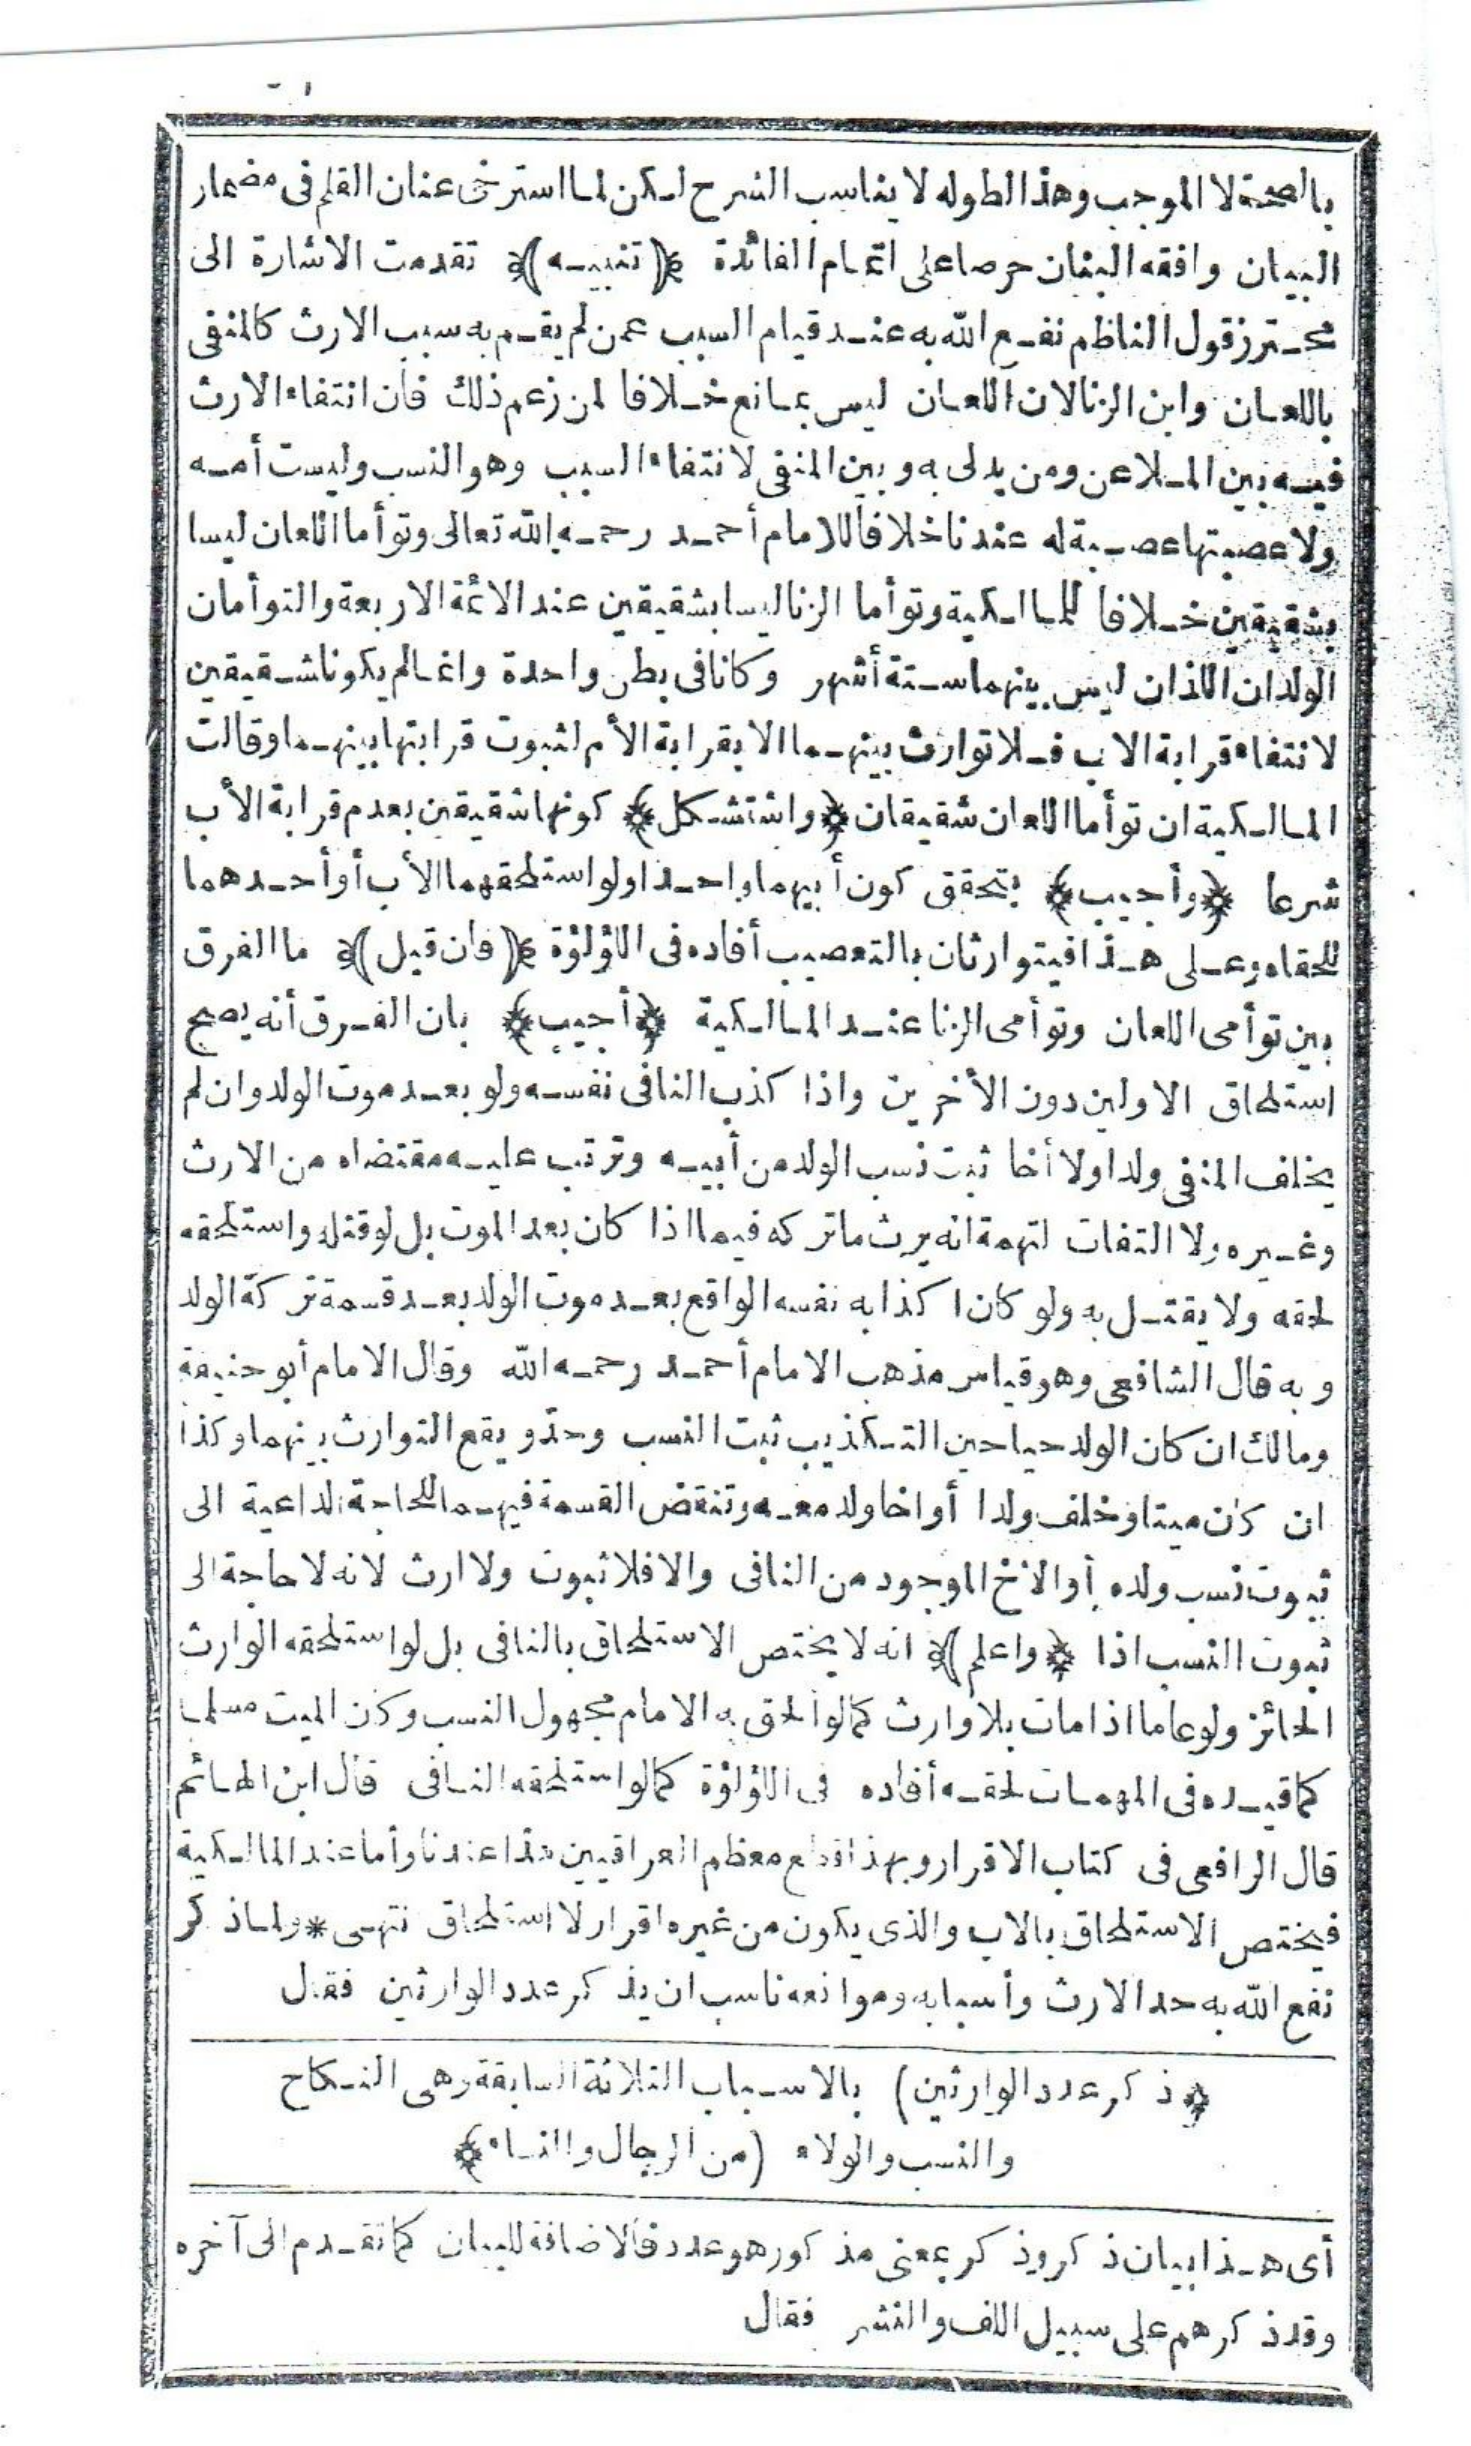 بالصحة لا الموجب وهذا لطوله لا يناسب الشرح لكن لما استرخى عنان القلم فى مضمار
البيان وافقه البنان حرصا على اتمام الفائدة ﴿تنبيه﴾ تقدمت الاشارة الى
محترز قول الناظم نفع الله به عند قيام السبب عمن لم يقم به سبب الارث كالمنفى
باللعان وابن الزنا لان اللعان ليس بمانع خلافا لمن زعم ذلك فان انتفاء الارث
فيه بين الملاعن ومن يدلى به وبين المنفى لانتفاء السبب وهو النسب وليست أمه
ولا عصبتها عصبة له عندنا خلافا للامام أحمد رحمه الله تعالى وتوأما اللعان ليسا
بشقيقين خلافا للمالكية وتوأما الزنا ليسا بشقيقين عند الائمة الاربعة والتوأمان
الولدان اللذان ليس بينهما ستة أشهر وكانا فى بطن واحدة وانما لم يكونا شقيقين
لانتفاء قرابة الاب فلا توارث بينهما الا بقرابة الأم لثبوت قرابتها بينهما وقالت
المالكية ان توأما اللعان شقيقان ﴿واستشكل﴾ كونهما شقيقين بعدم قرابة الأب
شرعا ﴿وأجيب﴾ بتحقق كون أبيهما واحدا ولو استلحقهما الأب أو أحدهما
للحقاه وعلى هذا فيتوارثان بالتعصيب أفاده فى اللؤلؤة ﴿فان قيل﴾ ما الفرق
بين توأمى اللعان وتوأمى الزنا عند المالكية ﴿أجيب﴾ بان الفرق أنه يصح
استلحاق الاولين دون الأخرين واذا كذب النافى نفسه ولو بعد موت الولد وان لم
يخلف المنفى ولدا ولا أخا ثبت نسب الولد من أبيه وترتب عليه مقتضاه من الارث
وغيره ولا التفات لتهمة انه يرث ما تركه فيما اذا كان بعد الموت بل لو قتله واستلحقه
لحقه ولا يقتل به ولو كان اكذابه نفسه الواقع بعد موت الولد بعد قسمة تركة الولد
وبه قال الشافعى وهو قياس مذهب الامام أحمد رحمه الله وقال الامام أبو حنيفة
ومالك ان كان الولد حيا حين التكذيب ثبت النسب وحد ويقع التوارث بينهما وكذا
ان كان ميتا وخلف ولدا أو اخا ولد معه وتنقض القسمة فيهما للحاجة الداعية الى
ثبوت نسب ولده أو الأخ الموجود من النافى والا فلا ثبوت ولا ارث لانه لا حاجة الى
ثبوت النسب اذا ﴿واعلم﴾ انه لا يختص الاستلحاق بالنافى بل لو استلحقه الوارث
الحائز ولو عاما اذا مات بلا وارث كما لو ألحق به الامام مجهول النسب وكان الميت مسلما
كما قيده فى المهمات لحقه أفاده فى اللؤلؤة كما لو استلحقه النافى قال ابن الهائم
قال الرافعى فى كتاب الاقرار وبهذا قطع معظم العراقيين هذا عندنا وأما عند المالكية
فيختص الاستلحاق بالاب والذى يكون من غيره اقرار لا استلحاق انتهى * ولما ذكر
نفع الله به حد الارث وأسبابه وموانعه ناسب ان يذكر عدد الوارثين فقال
﴿ذكر عدد الوارثين) بالاسباب الثلاثة السابقة وهى النكاح
والنسب والولاء (من الرجال والنساء﴾
أى هذا بيان ذكر وذكر بمعنى مذكور هو عدد فالاضافة للبيان كما تقدم الى آخره
وقد ذكرهم على سبيل اللف والنشر فقال